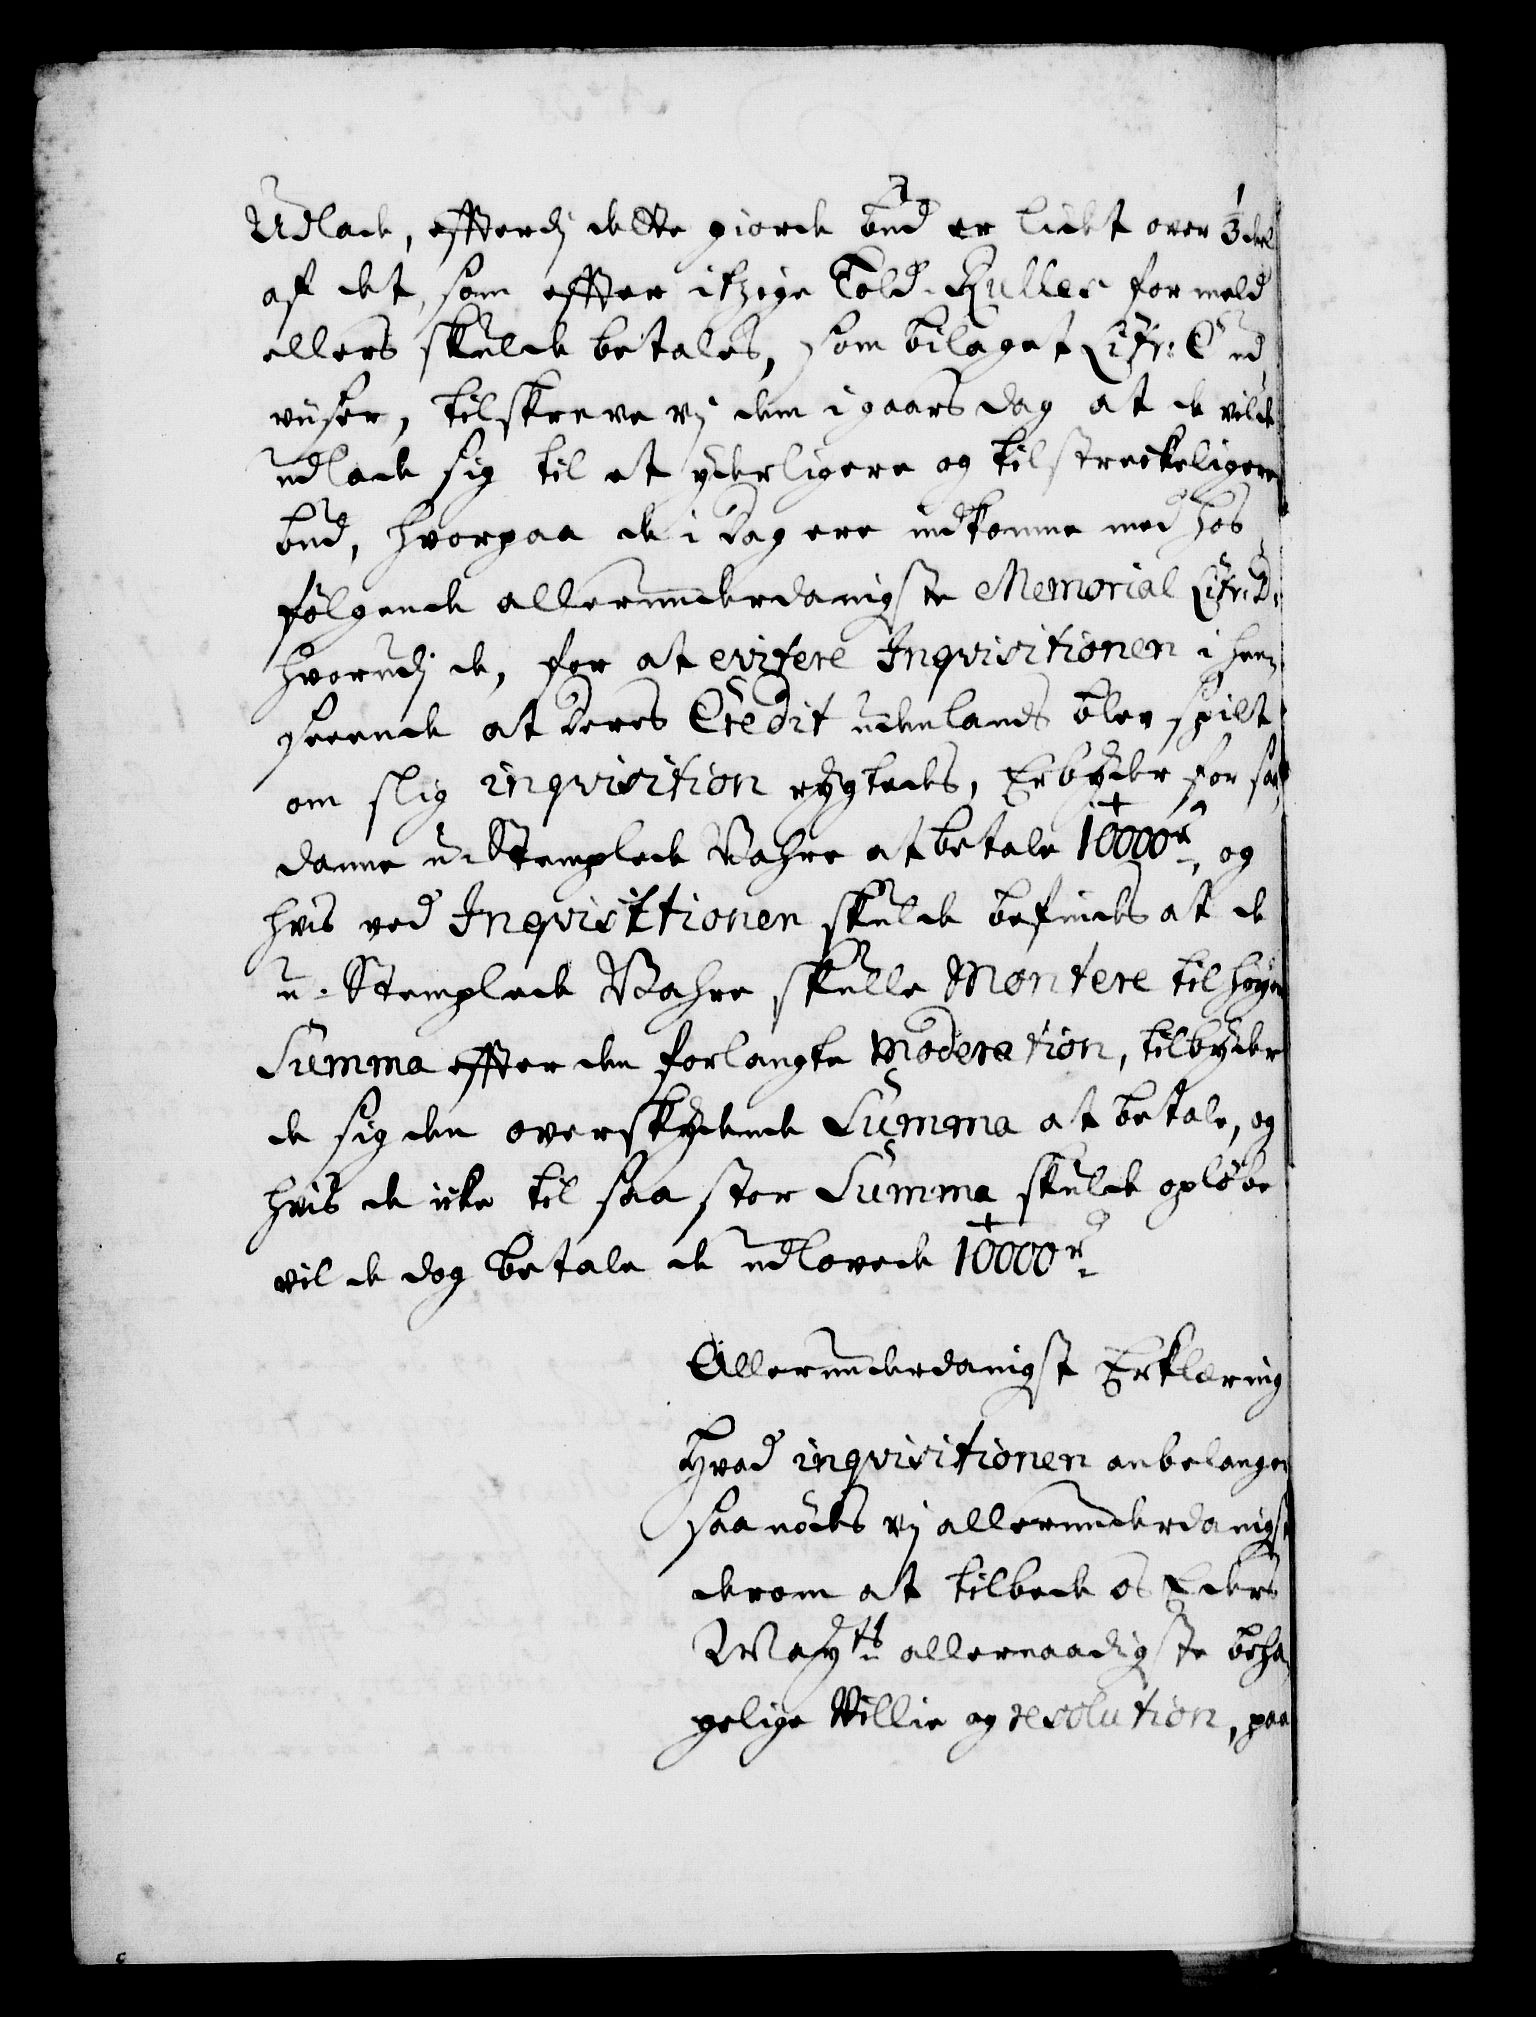 Udlade, efftterdj dette giorde bud er lidet over 1/3 deel
af det, som effter itzige Told-Rulles formeld
ellers skulde betales, som bilaget Litr: C ud,
viiser, tilskreve vj dem igaars dag at de vilde
udlade sig til et ÿderligere og tilstreckeligere
bud, hvorpaa de i dag ere indkomne med hos
følgende allerunderdanigste Memorial Litr: D.
hvorudj de, for at evitere Inqvisitionen i hen,
seende at deres Credit udenlands blev spilt
om slig inqvisition rÿgtedes, Erbÿder for saa,
danne u-Stemplede Vahre at betale 10000 Rd, og
hvis ved Inqvisitionen skulde befindes at de
u-Stemplede Vahre skulle Montere til høyere
Summa effter den forlangte Moderation, tilbÿder
de sig den overskÿdende Summa at betale, og
hvis de icke til saa stor Summa skulde opløbe
vil de dog betale de udlovede 10000 Rd
Allerunderdanigst Erklæring
Hvad inqvisitionen anbelanger
saa nødes vj allerunderdanigst
derom at tilbede os Eders
Mayts allernaadigste beha,
gelige Villie og resolution, paa